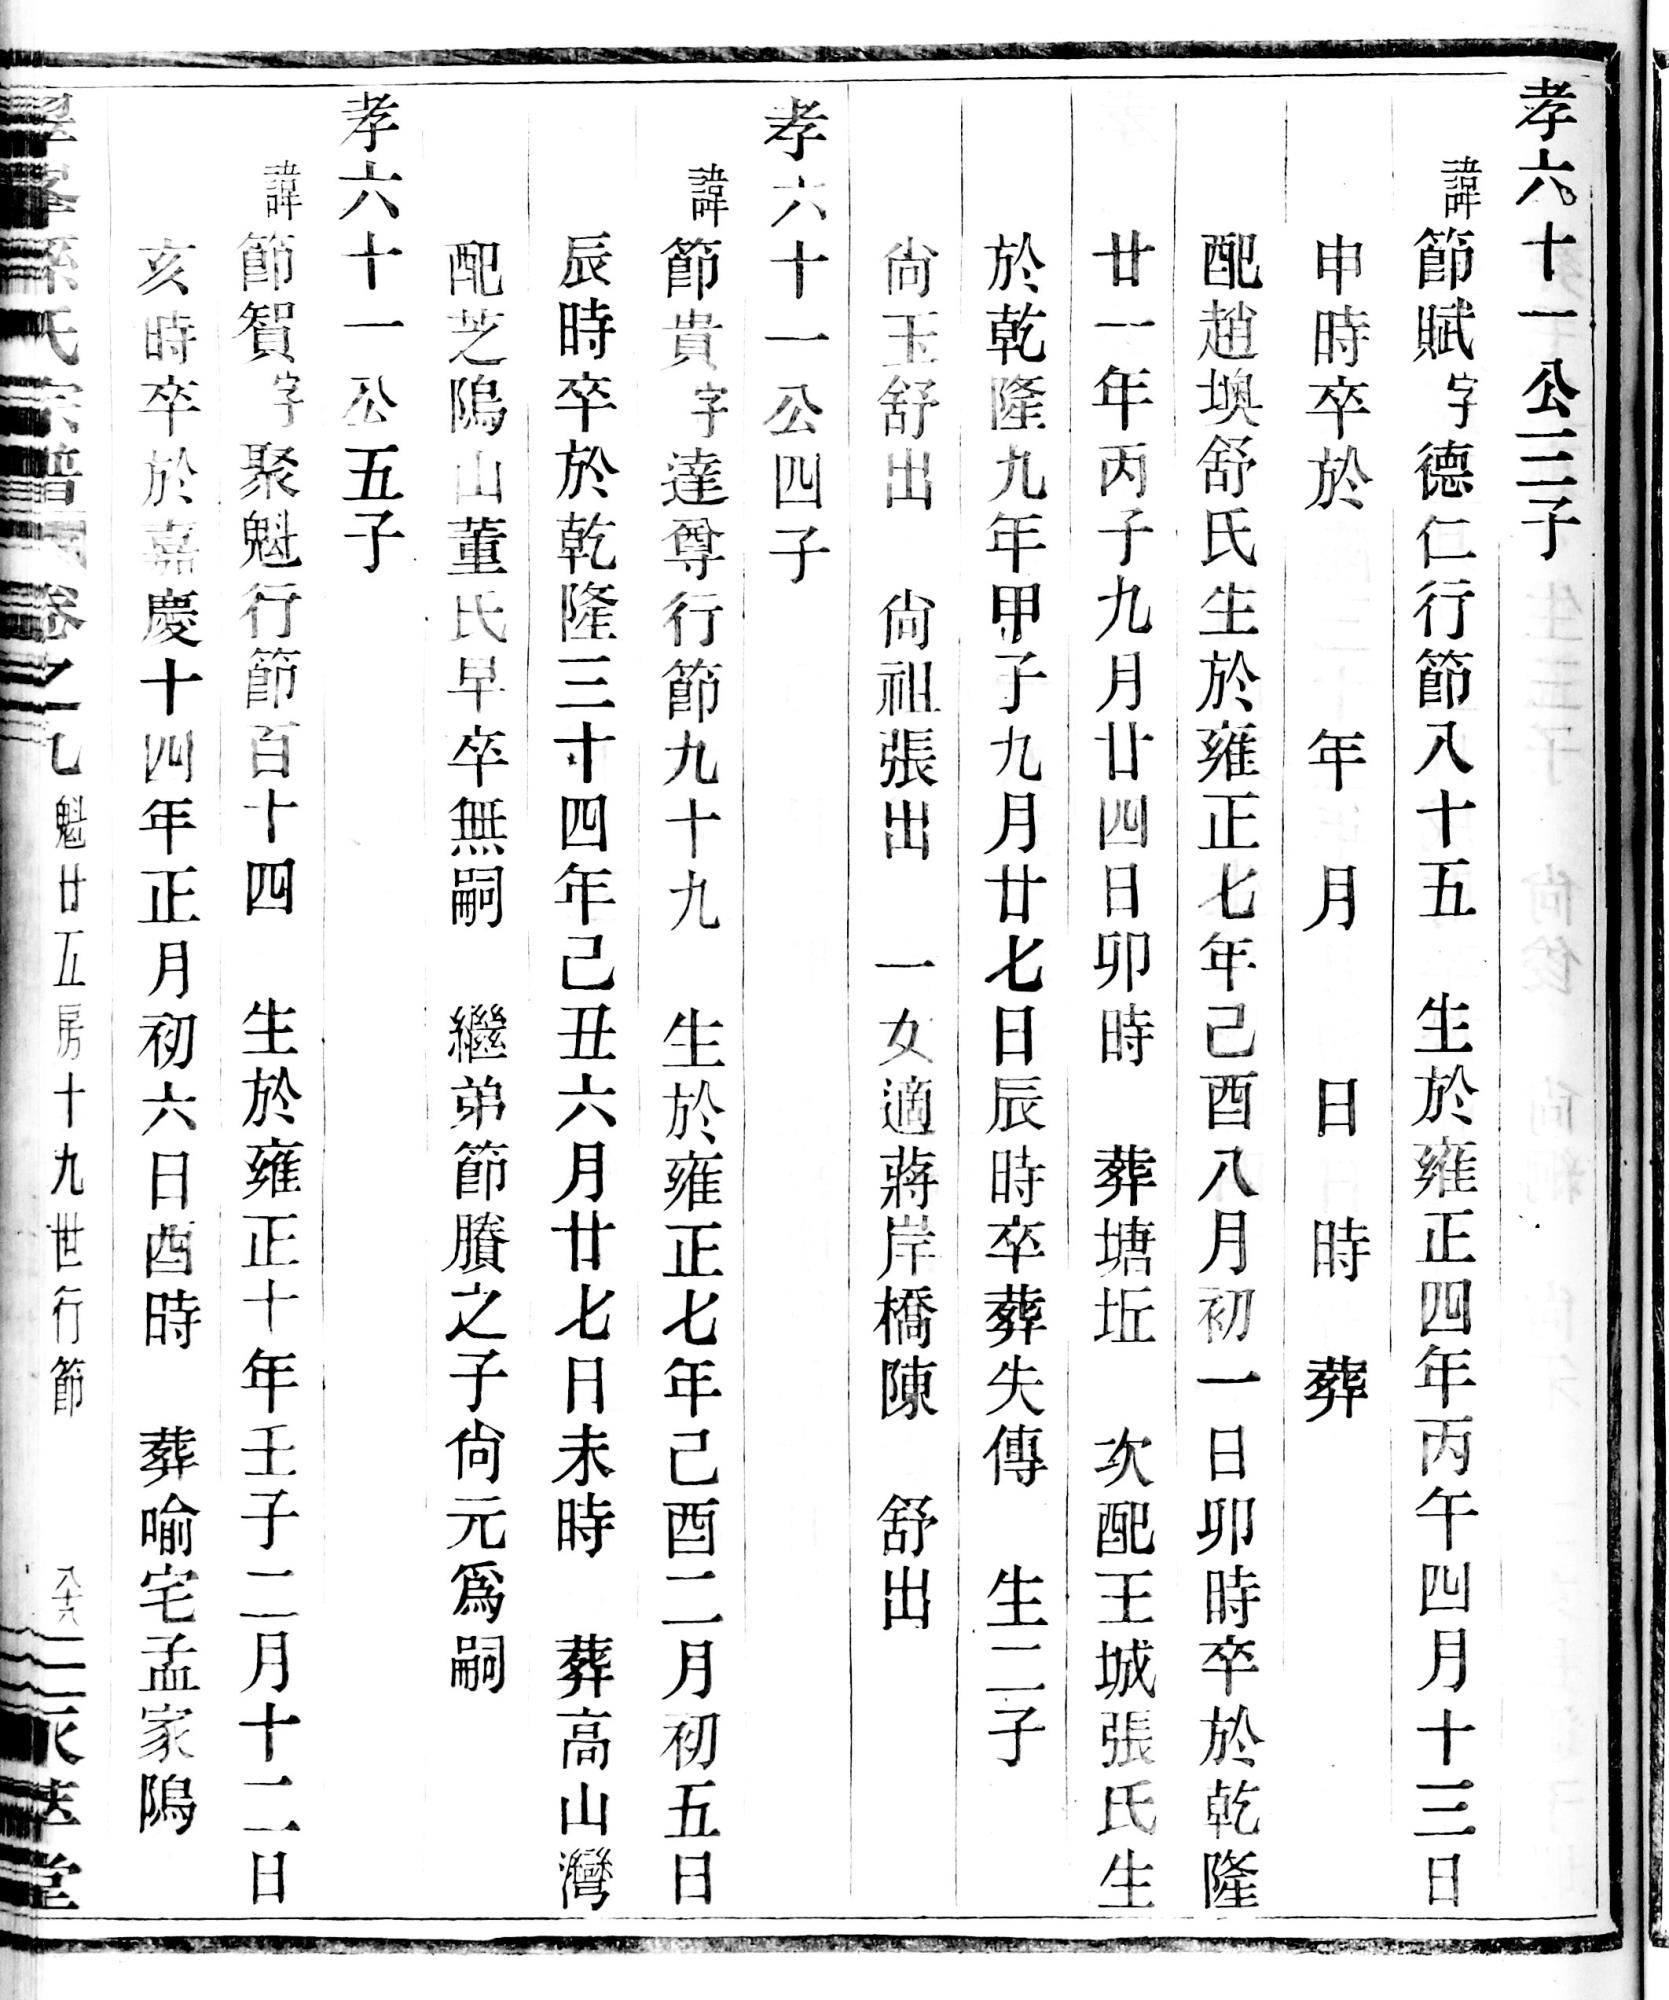 孝六十一公三子
諱節賦字德仁行節八十五　生於雍正四年丙午四月十三日
申時卒於　年　月　日　時　葬
配趙墺舒氏生於雍正七年己酉八月初一日卯時卒於乾隆
廿一年丙子九月廿四日卯時　葬塘坵　次配王城張氏生
於乾隆九年甲子九月廿七日辰時卒葬失傳　生二子
尙玉舒出　尙祖張出　一女適蔣岸橋陳　舒出
孝六十一公四子
諱節貴字達尊行節九十九　生於雍正七年己酉二月初五日
辰時卒於乾隆三十四年己丑六月廿七日未時　葬高山灣
配芝隝山董氏早卒無嗣　繼弟節賸之子尙元爲嗣
孝六十一公五子
諱節賀字聚魁行節百十四　生於雍正十年壬子二月十二日
亥時卒於嘉慶十四年正月初六日酉時　葬喻宅孟家隝
孫氏宗譜　卷之九　魁廿五房十九世行節　堂